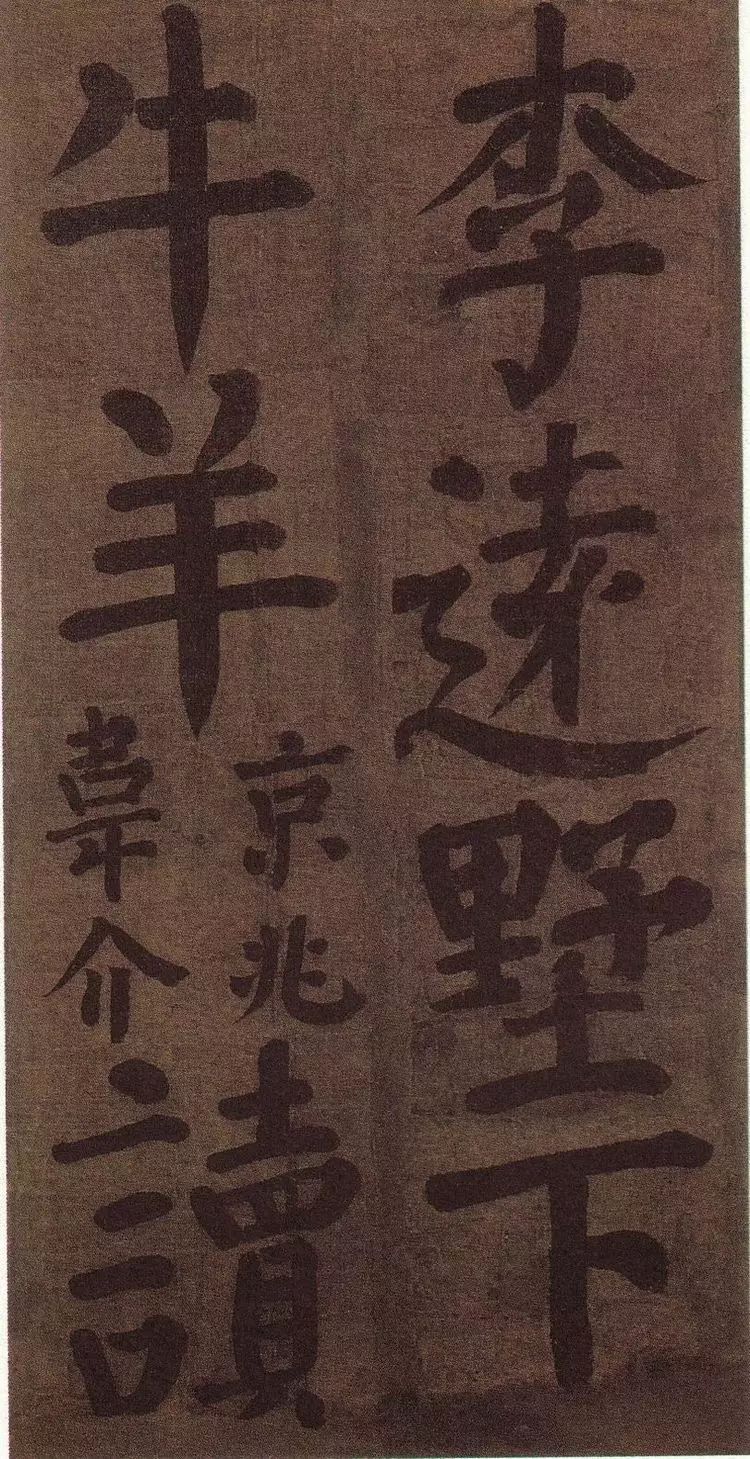 李遠墅下
牛羊
京兆
韋介
讀